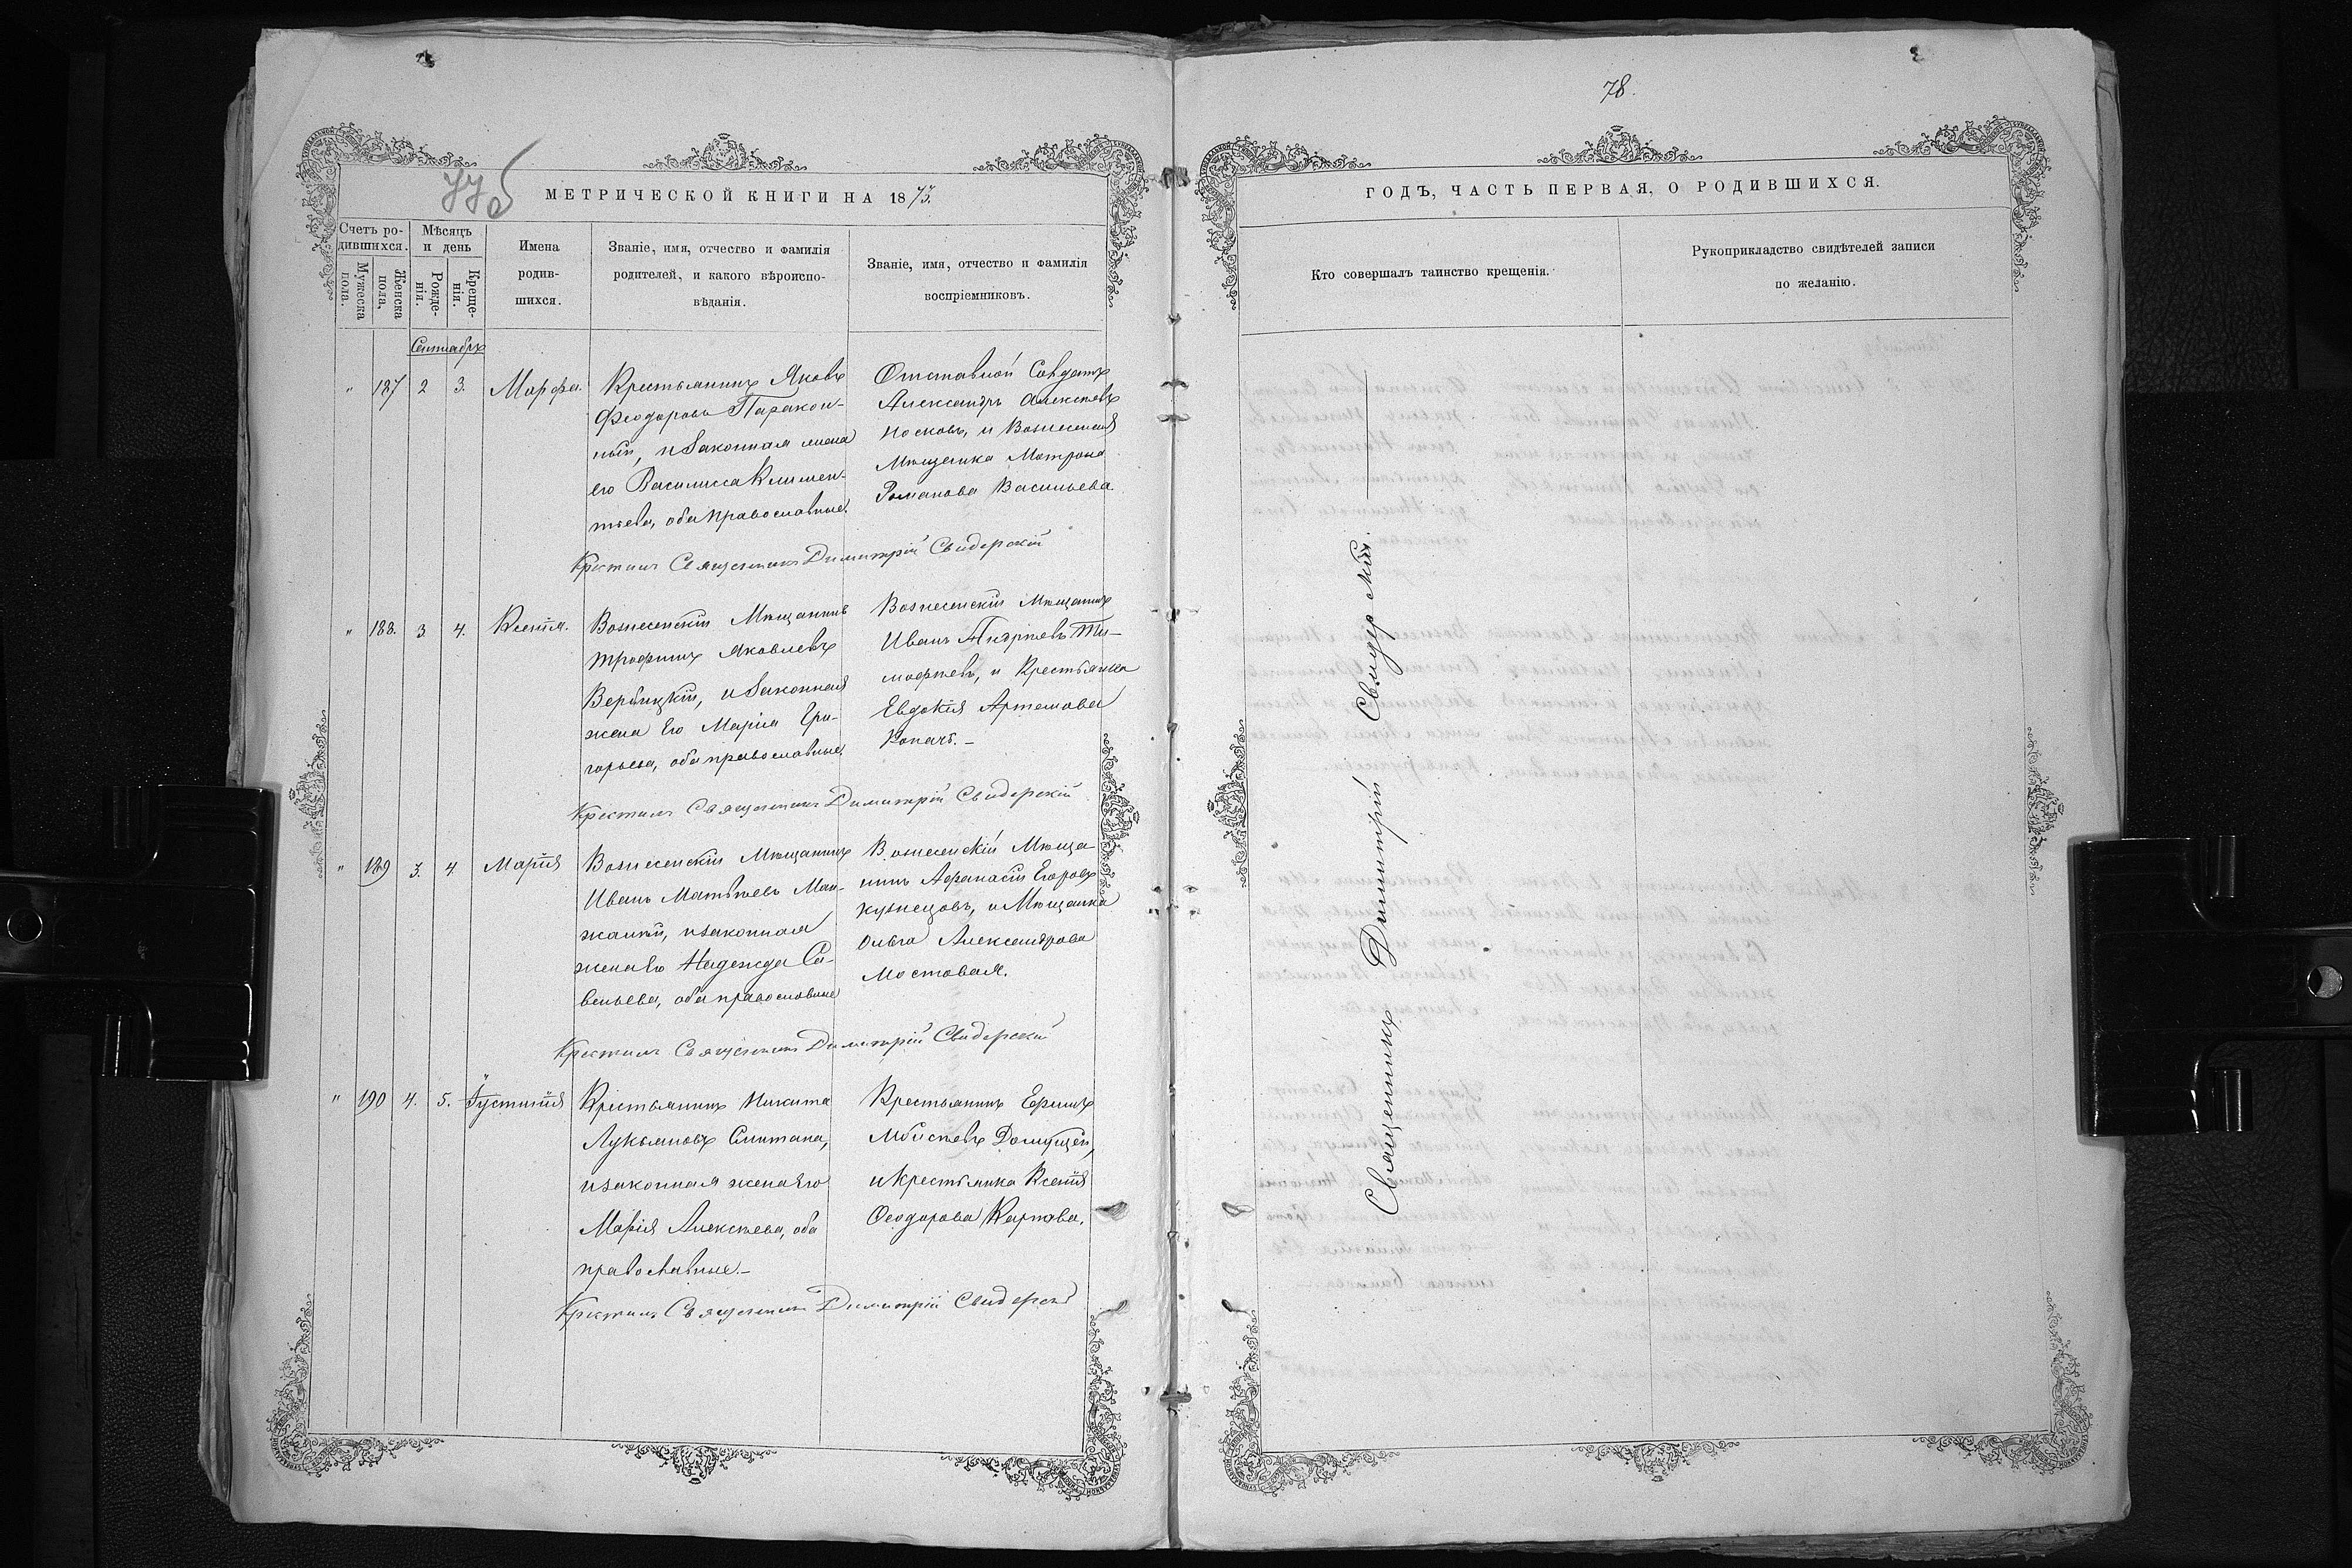 78.
МЕТРИЧЕСКОЙ КНИГИ НА 1873.
Счетъ ро-
дившихся.
Мужеска
пола.
Женска
пола.
Мѣсяцъ
и день
Рожде-
нія.
Креще-
нія.
Имена
родив-
шихся.
Званіе, имя, отчество и фамилія
родителей, и какого вѣроиспо-
вѣданія.
Званіе, имя, отчество и фамилія
воспріемниковъ.
Сентябрь
" 187 2 3. Марфа.
Крестьянинъ Яковъ
Феодоровъ Паракон-
ный, и законная жена
его Василисса Климен-
тьева, оба православные.
Отставной Солдатъ
Александръ Алексѣевъ
Носковъ, и Вознесенская
Мѣщанка Матрона
Романова Васильева.
Крестилъ Священникъ Димитрій Свидерскій
" 188. 3 4. Ксенія.
Вознесенскій Мѣщанинъ
Трофимъ Яковлевъ
Вербицкій, и законная
жена его Марія Гри-
горьева, оба православные.
Вознесенскій Мѣщанинъ
Иванъ Андреевъ Ти-
мофѣевъ, и Крестьянка
Евдокія Артемова
Копачъ.-
Крестилъ Священникъ Димитрій Свидерскій
" 189 3. 4 Марія
Вознесенскій Мѣщанинъ
Иванъ Матвѣевъ Ман-
жалій, и законная
жена его Надежда Са-
вельева, оба православные
Вознесенскій Мѣща-
нинъ Афанасій Егоровъ
Кузнецовъ, и Мѣщанка
Ольга Александрова
Мостовая.
Крестилъ Священникъ Димитрій Свидерскій
" 190 4. 5. Іустинія
Крестьянинъ Никита
Лукьяновъ Сметана,
и законная жена его
Марія Алексѣева, оба
православные.-
Крестьянинъ Ефимъ
Моисѣевъ
и крестьянка Ксенія
Ѳеодорова Карпова.
Крестилъ Священникъ Димитрій Свидерскій
ГОДЪ, ЧАСТЬ ПЕРВАЯ, О РОДИВШИХСЯ.
Кто совершалъ таинство крещенія.
Рукоприкладство свидѣтелей записи
по желанію.
Священникъ Димитрій Свидерскій.